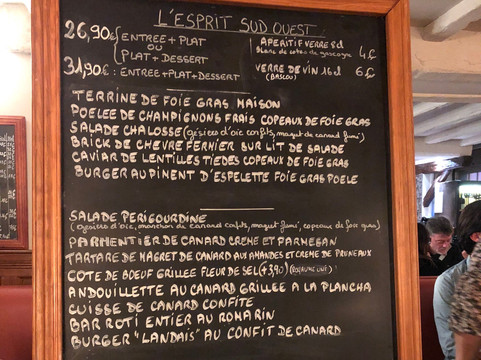 L'ESPRIT SUD OUEST
26,90€ { ENTREE + PLAT
OU
PLAT + DESSERT
31,90€ : ENTREE + PLAT + DESSERT
APERITIF VERRE 8cl 4€
blanc de cotes de gascogne
VERRE DE VIN 16cl 6€
(BASCOU)
TERRINE DE FOIE GRAS MAISON
POELEE DE CHAMPIGNONS FRAIS COPEAUX DE FOIE GRAS
SALADE CHALOSSE (gésiers d'oie confits, magret de canard fumé)
BRICK DE CHEVRE FERMIER SUR LIT DE SALADE
CAVIAR DE LENTILLES TIEDES COPEAUX DE FOIE GRAS
BURGER AU PIMENT D'ESPELETTE FOIE GRAS POELE
SALADE PERIGOURDINE
(gésiers d'oie, manchon de canard confits, magret fumé, copeaux de foie gras)
PARMENTIER DE CANARD CREME ET PARMESAN
TARTARE DE MAGRET DE CANARD AUX AMANDES ET CREME DE PRUNEAUX
COTE DE BOEUF GRILLEE FLEUR DE SEL (+3,90) (ROYAUME UNI)
ANDOUILLETTE AU CANARD GRILLEE A LA PLANCHA
CUISSE DE CANARD CONFITE
BAR ROTI ENTIER AU ROMARIN
BURGER "LANDAIS" AU CONFIT DE CANARD